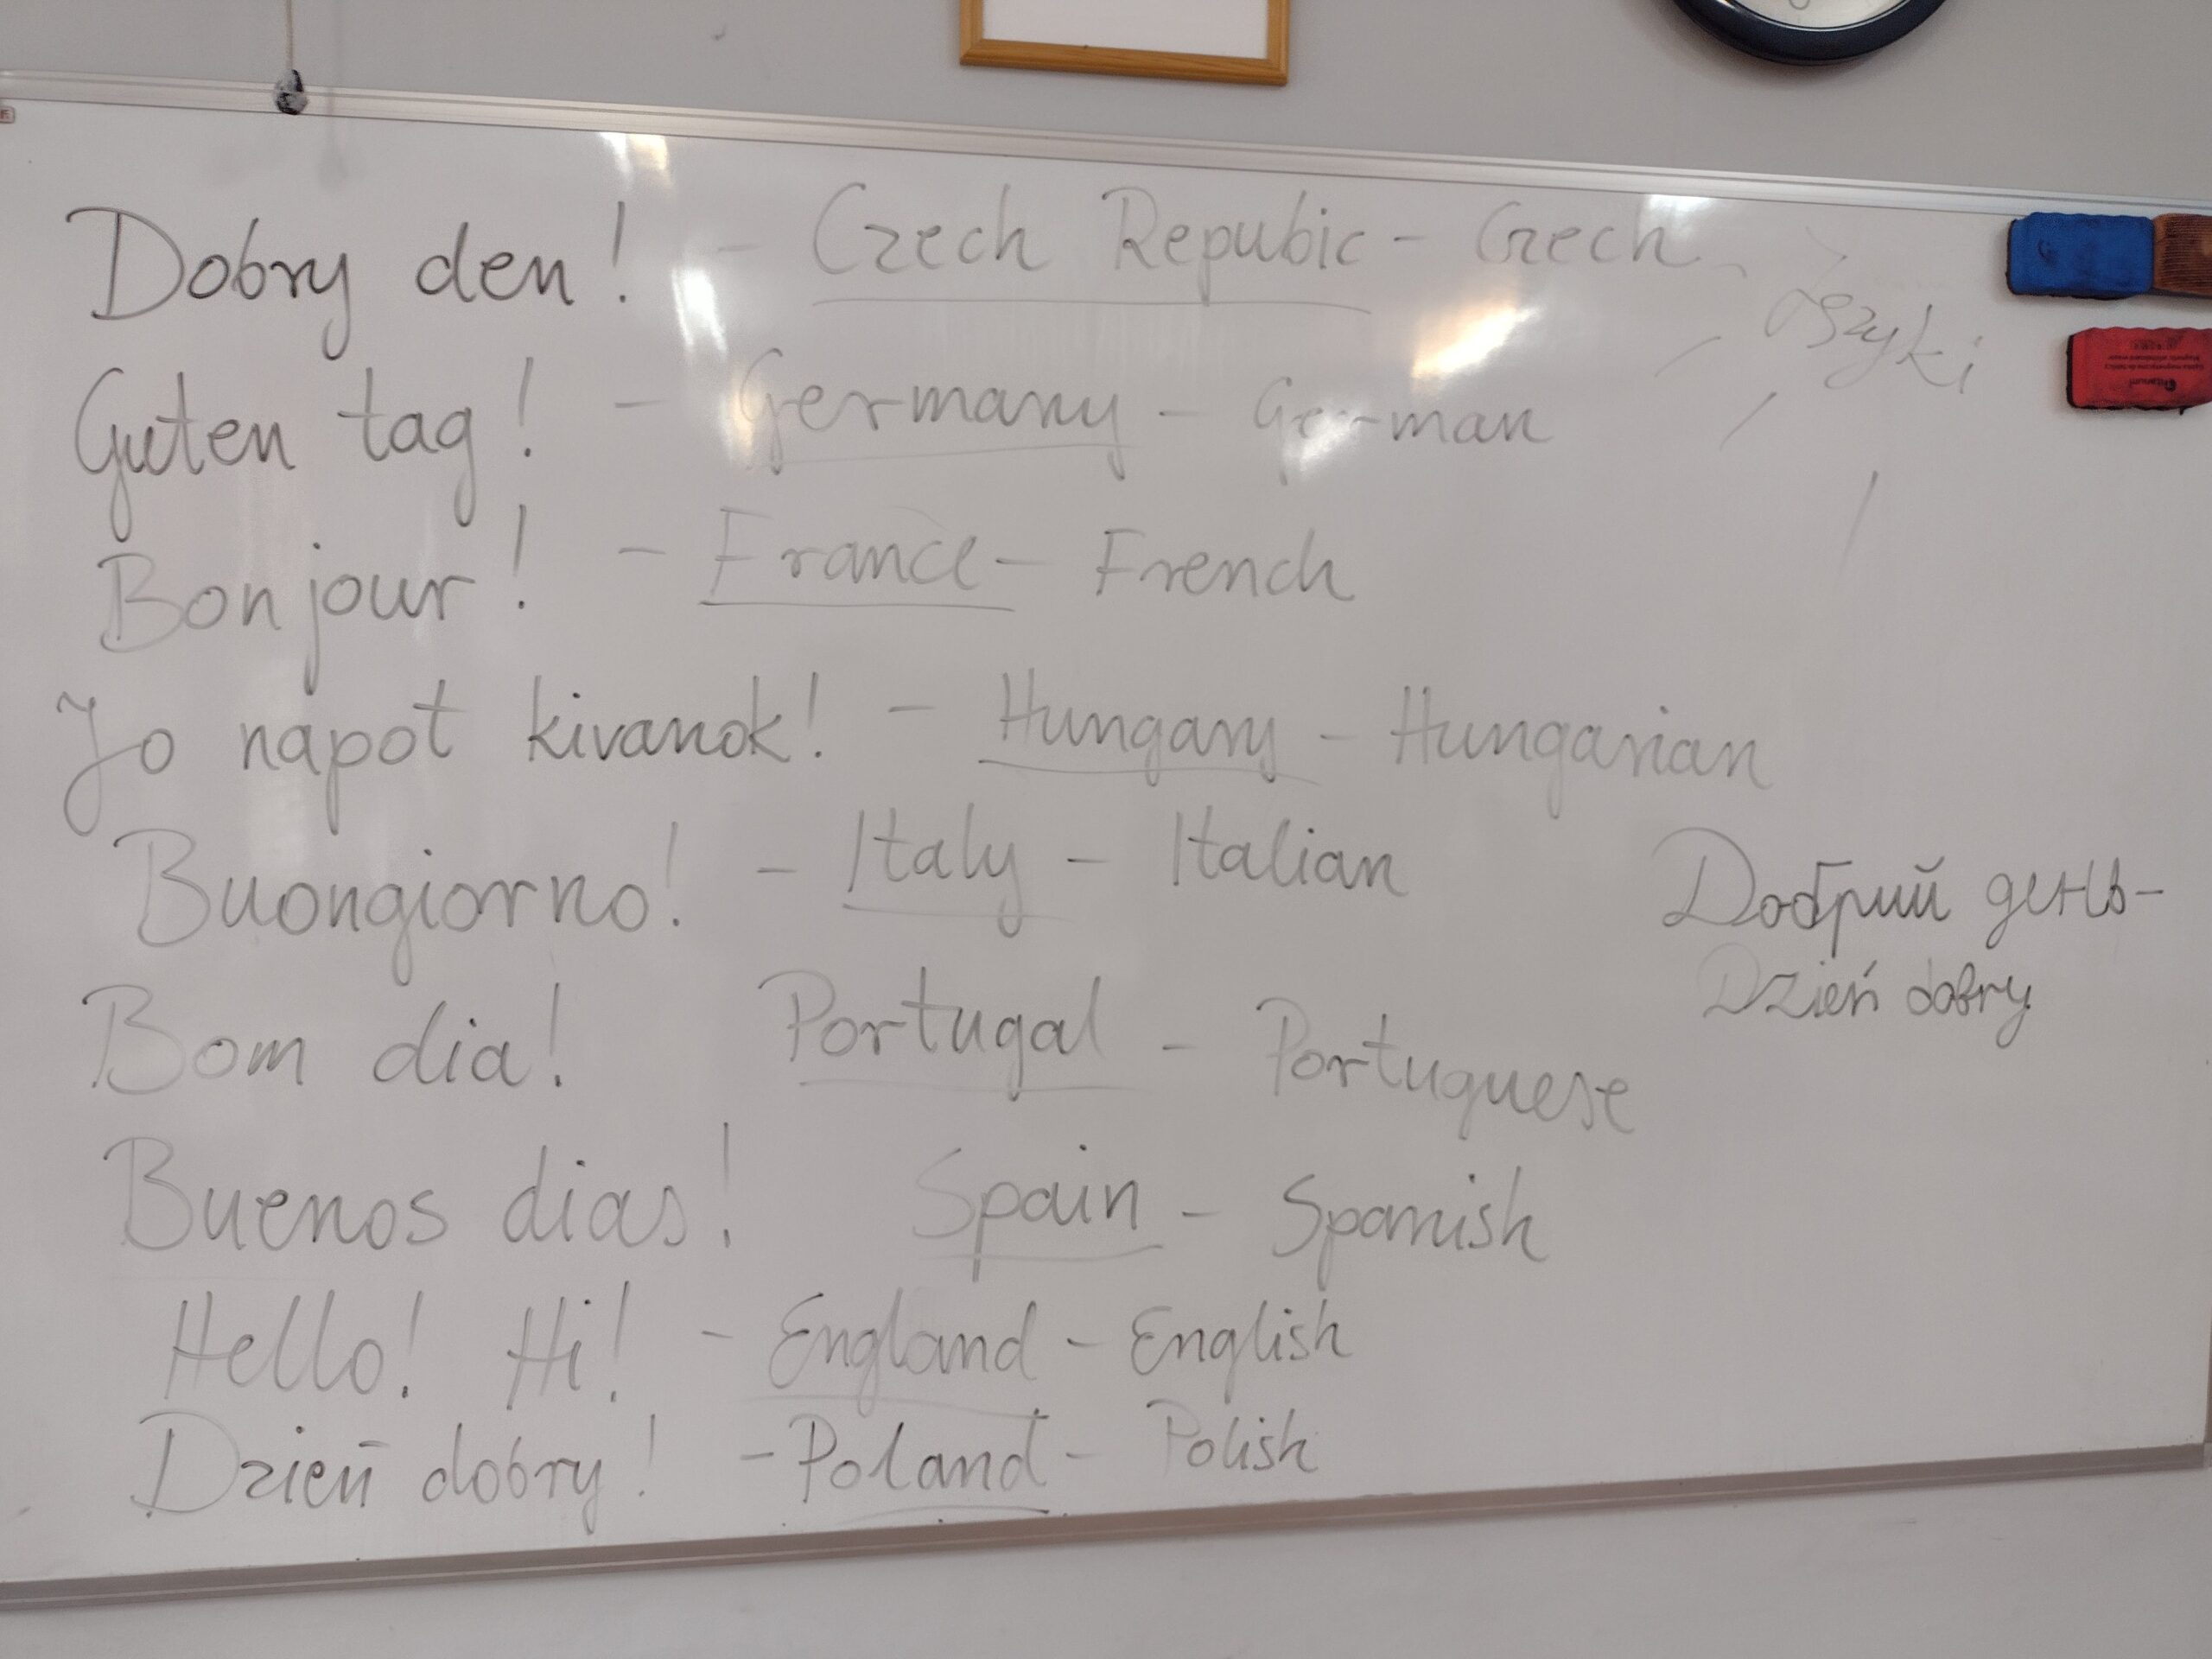 Dobry den! - Czech Repubic - Czech
języki
Guten tag! - Germany - German
Bonjour! - France - French
Jo napot kivanok! - Hungary - Hungarian
Buongiorno! - Italy - Italian
Добрий день -
Dzień dobry
Bom dia! Portugal - Portuguese
Buenos dias! Spain - Spanish
Hello! Hi! - England - English
Dzień dobry! - Poland - Polish